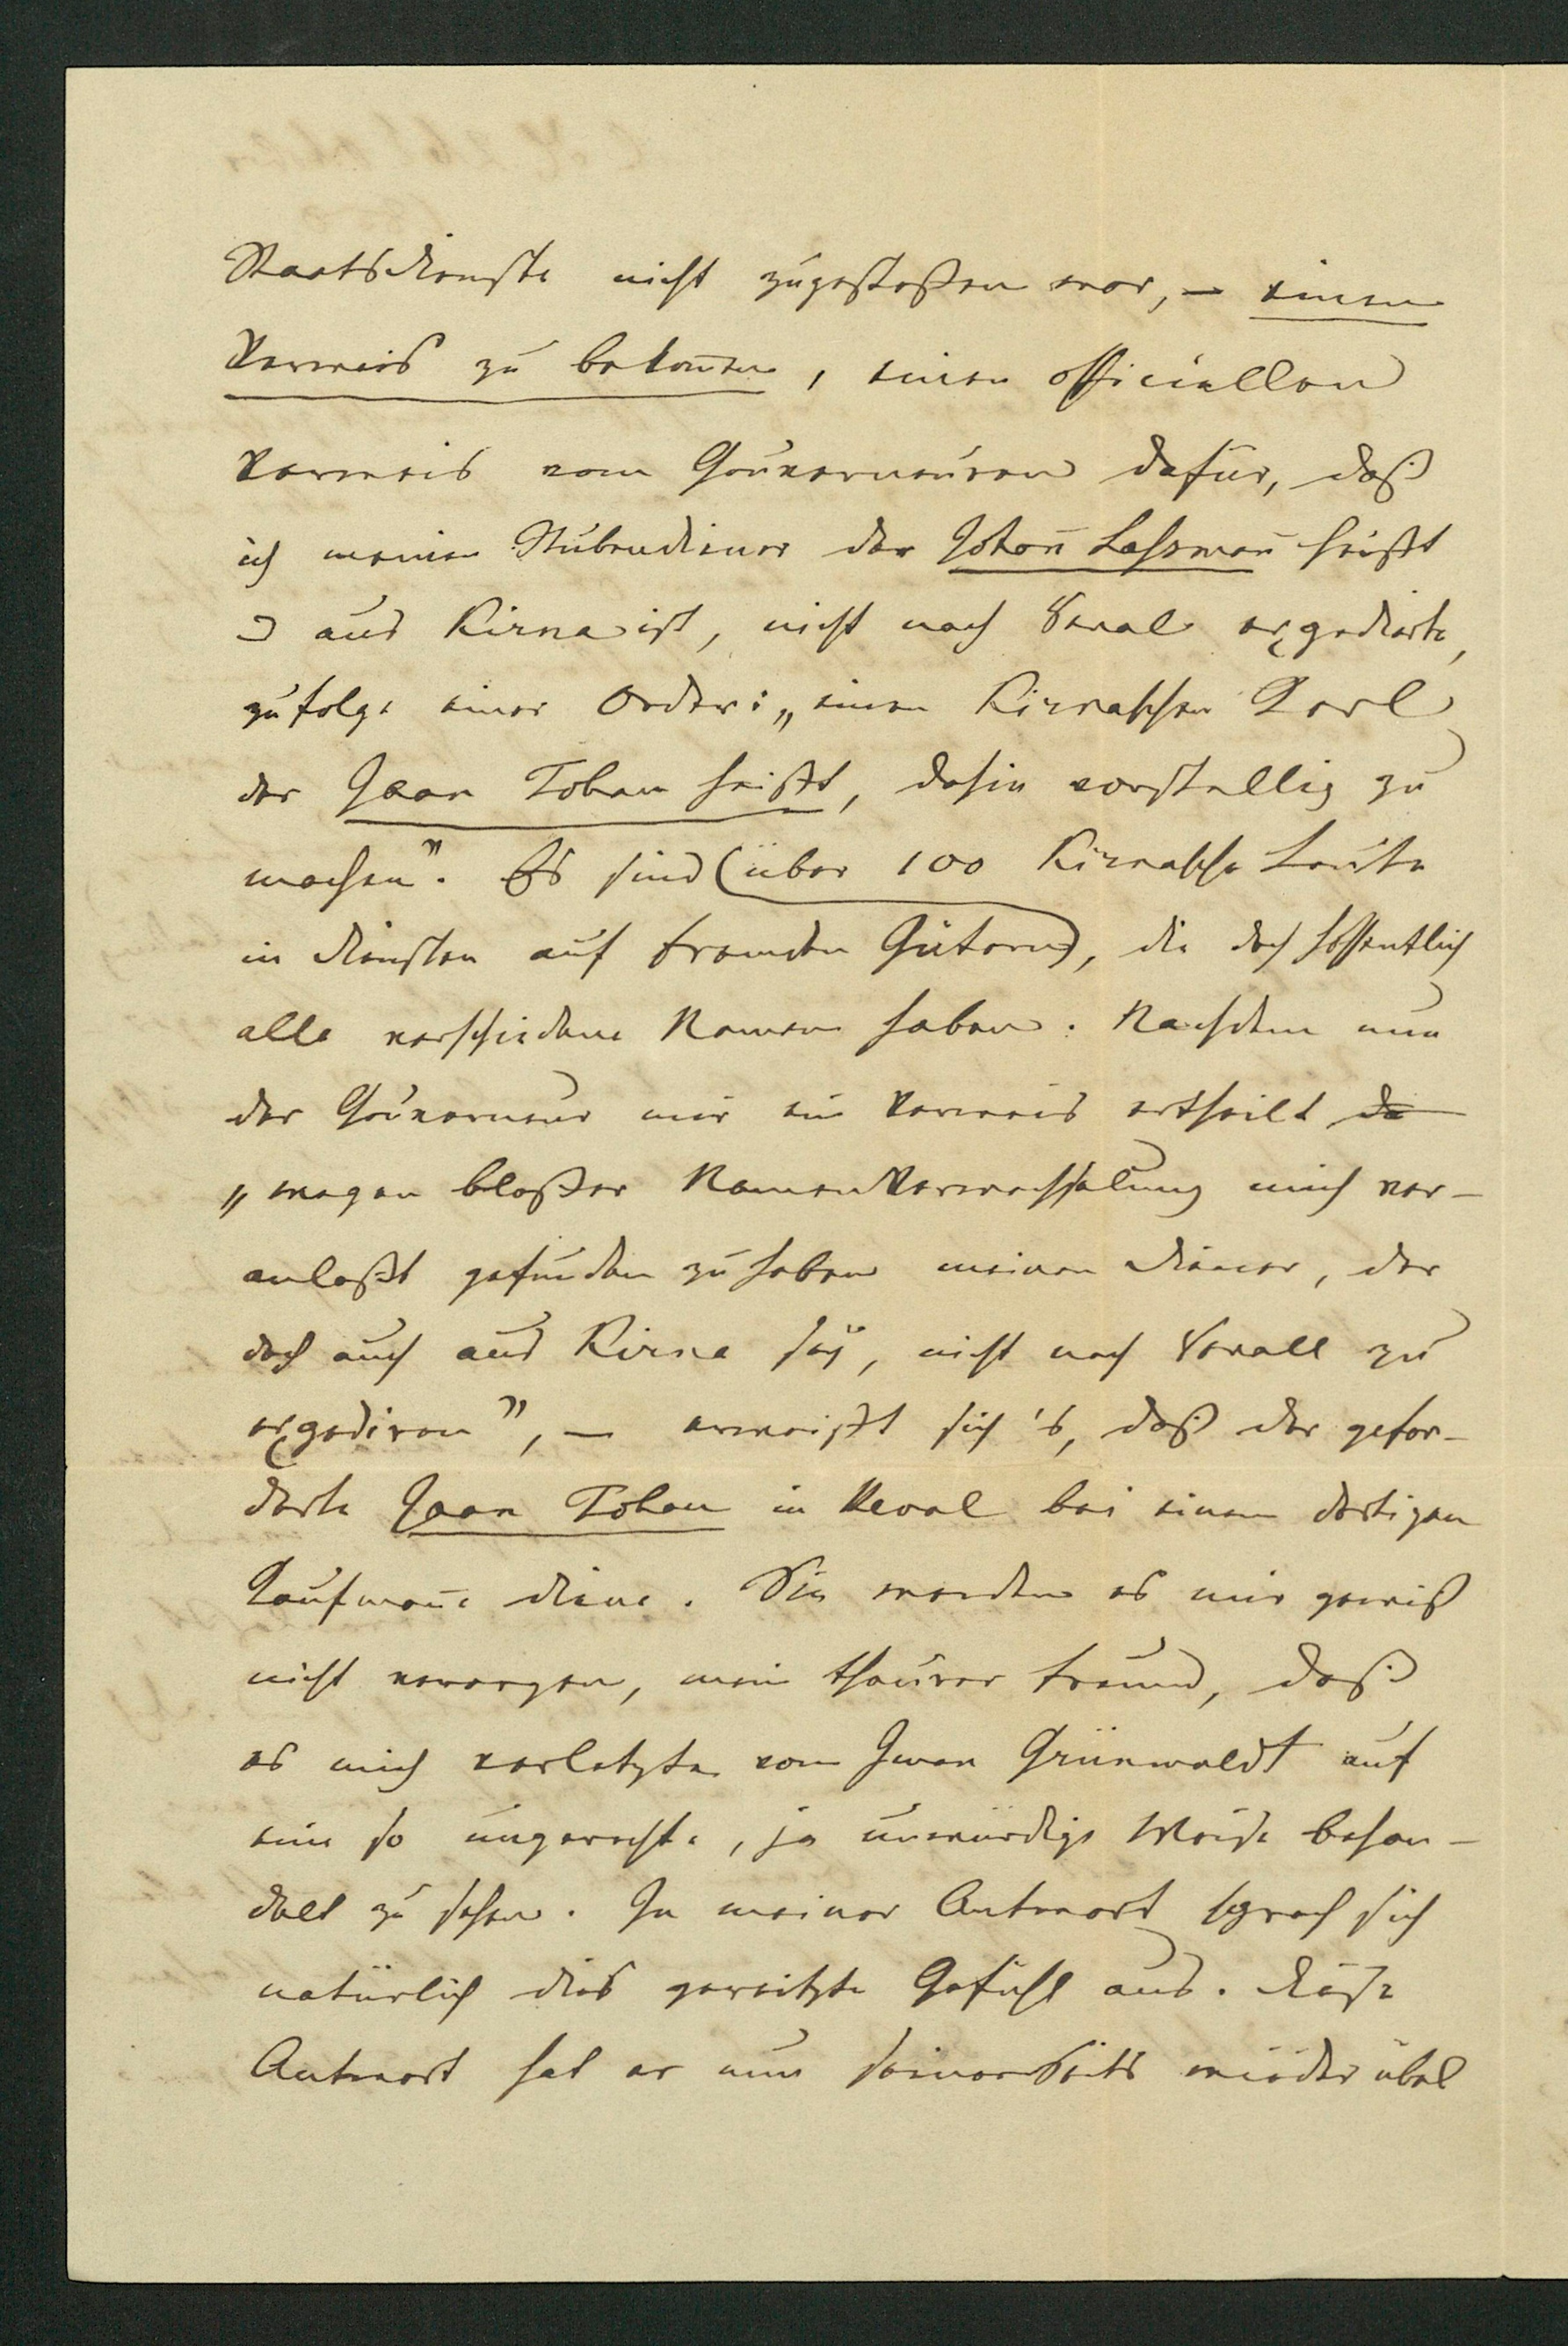 Staatsdienste nicht zugestoßen war, – einen
Verweis zu bekom̅en, einen officiellen
Verweis vom Gouverneuren dafür, daß
ich meinen Stubendiener der Johan̅ Lassman̅ heißt
& aus Kirna ist, nicht nach Reval expedirte,
zufolge einer Order: „einen Kirnaschen Kerl
der Jaan Toban heißt, dahin vorstellig zu
machen". Es sind (über 100 Kirnasche Leute
in Diensten auf fremden Gütern), die doch hoffentlich
alle verschiedene Namen haben. Nachdem nun
der Gouverneur mir ein Verweis ertheilt da
„wegen bloßer Namen Verwechselung mich ver-
anlaßt gefunden zu haben meinen Diener, der
doch auch aus Kirna sey, nicht nach Revall zu
expediren", – erweißt sich 's, daß der gefor-
derte Jaan Toban in Reval bei einem dortigen
Kaufman̅e diene. Sie werden es mir gewiß
nicht verargen, mein theurer Freund, daß
es mich verletzte vom Iwan Grünwaldt auf
eine so ungerechte, ja unwürdige Weise behan-
delt zu sehen. In meiner Antwort sprach sich
natürlich dies gereitzte Gefühl aus. Diese
Antwort hat er nun seinerseits wieder übel